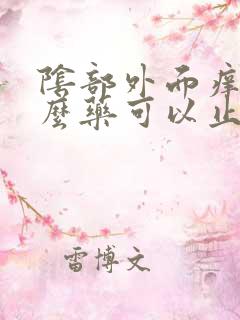 陰部外而痒
麼藥可以止
雷博文